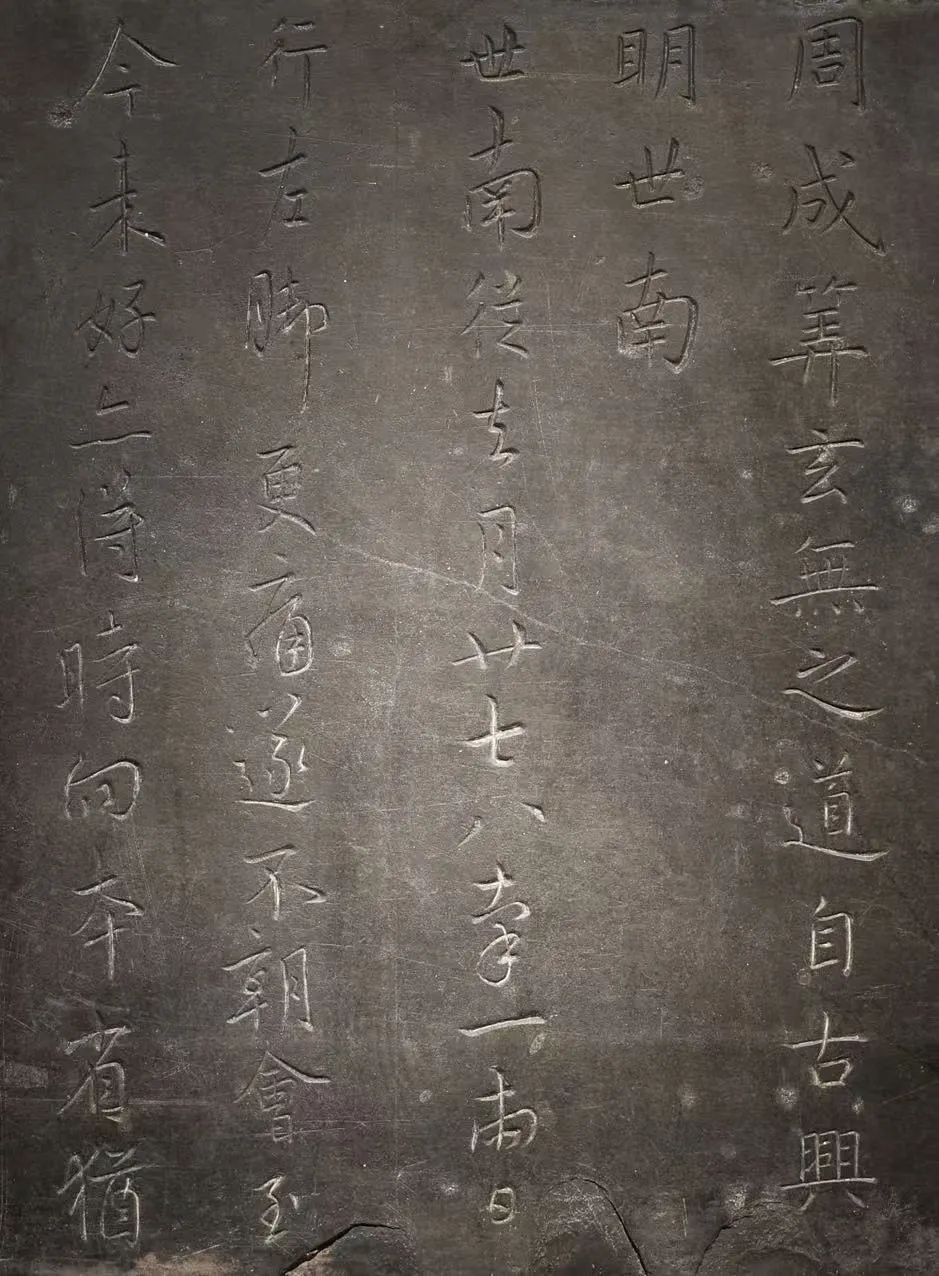 周成筭玄無之道自古興
明世南
世南從去月廿七八率一兩日
行左脚更痛遂不朝會至
今未好亦得時向本省猶